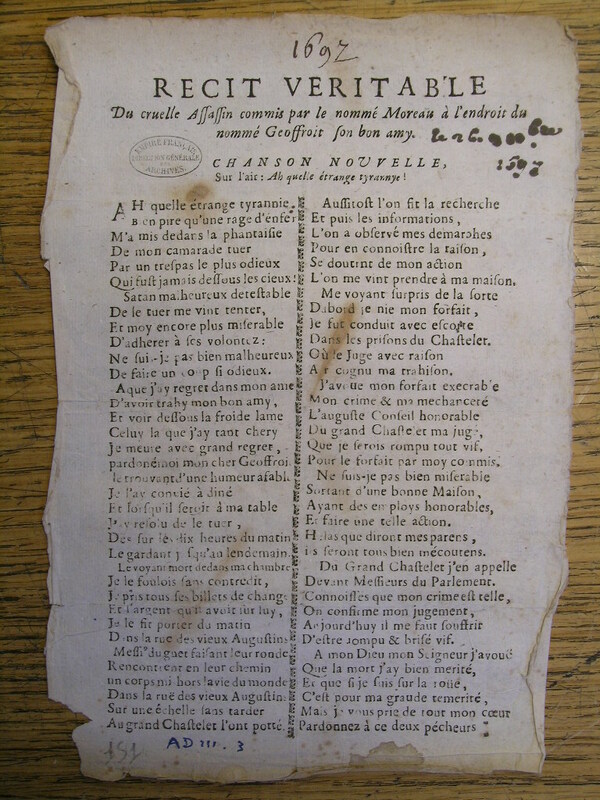 1692
RECIT VERITABLE
Du cruelle Assassin commis par le nommé Moreau à l'endroit du
nommé Geoffroit son bon amy.
EMPIRE FRANÇAIS
DIRECTION GÉNÉRALE
DES
ARCHIVES
1697
CHANSON NOUVELLE,
Sur l'air: Ah quelle étrange tyrannye!
AH quelle étrange tyrannie,
Bien pire qu'une rage d'enfer
M'a mis dedans la phantaisie
De mon camarade tuer
Par un trespas le plus odieux
Qui fust jamais dessous les cieux!
Satan malheureux detestable
De le tuer me vint tenter,
Et moy encore plus miserable
D'adherer à ses volontez:
Ne suis-je pas bien malheureux
De faire un coup si odieux.
A que j'ay regret dans mon ame
D'avoir trahy mon bon amy,
Et voir dessous la froide lame
Celuy la que j'ay tant chery
Je meure avec grand regret,
pardoné moi mon cher Geoffroi.
le trouvant d'une humeur afable
Je l'ay convié à diné
Et lorsqu'il seroit à ma table
J'ay resolu de le tuer,
Des sur les dix heures du matin
Le gardant jusqu'au lendemain.
Le voyant mort dedans ma chambre
Je le foulois sans contredit,
Je pris tous ses billets de change
Et l'argent qu'il avoit sur luy,
Je le fit porter du matin
Dans la rue des vieux Augustins
Messrs du guet faisant leur ronde
Rencontrent en leur chemin
un corps mis hors la vie du monde
Dans la ruë des vieux Augustins
Sur une échelle sans tarder
Au grand Chastelet l'ont porté.
Aussitost l'on fit la recherche
Et puis les informations,
L'on a observé mes demarches
Pour en connoistre la raison,
Se doutent de mon action
L'on me vint prendre à ma maison.
Me voyant surpris de la sorte
Dabord je nie mon forfait,
Je fut conduit avec escorte
Dans les prisons du Chastelet.
Où le Juge avec raison
A recognu ma trahison.
J'avoue mon forfait execrable
Mon crime & ma mechanceté
L'auguste Conseil honorable
Du grand Chastelet ma jugé,
Que je serois rompu tout vif,
Pour le forfait par moy commis.
Ne suis-je pas bien miserable
Sortant d'une bonne Maison,
Ayant des employs honorables,
Et faire une telle action.
Helas que diront mes parens,
ils seront tous bien mécontens.
Du Grand Chastelet j'en appelle
Devant Messieurs du Parlement.
Connoisses que mon crime est telle,
On confirme mon jugement,
Aujourd'huy il me faut souffrir
D'estre rompu & brisé vif.
A mon Dieu mon Seigneur j'avouë
Que la mort j'ay bien merité,
Et que si je suis sur la rouë,
C'est pour ma graude temerité,
Mais je vous prie de tout mon cœur
Pardonnez à ce deux pécheurs
151
AD III. 3